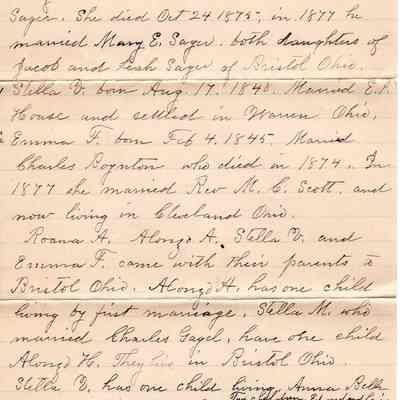 Sager. She died Oct 24 1875, in 1877 he
married Mary E. Sager. both daughters of
Jacob and Leah Sager of Bristol Ohio.
Stella V. born Aug. 17. 1843. Married E. P.
House and settled in Warren Ohio.
Emma F. born Feb 4. 1845. Married
Charles Boynton who died in 1874. In
1877 she married Rev M. C. Scott. and
now living in Cleveland Ohio.
Roana A. Alonzo A. Stella V. and
Emma F. came with their parents to
Bristol Ohio. Alonzo H. has one child
living by first marriage. Stella M. who
married Charles Gagel, have one child
Alonzo H. They live in Bristol Ohio.
Stella V. has one child living, Anna Belle
Two children